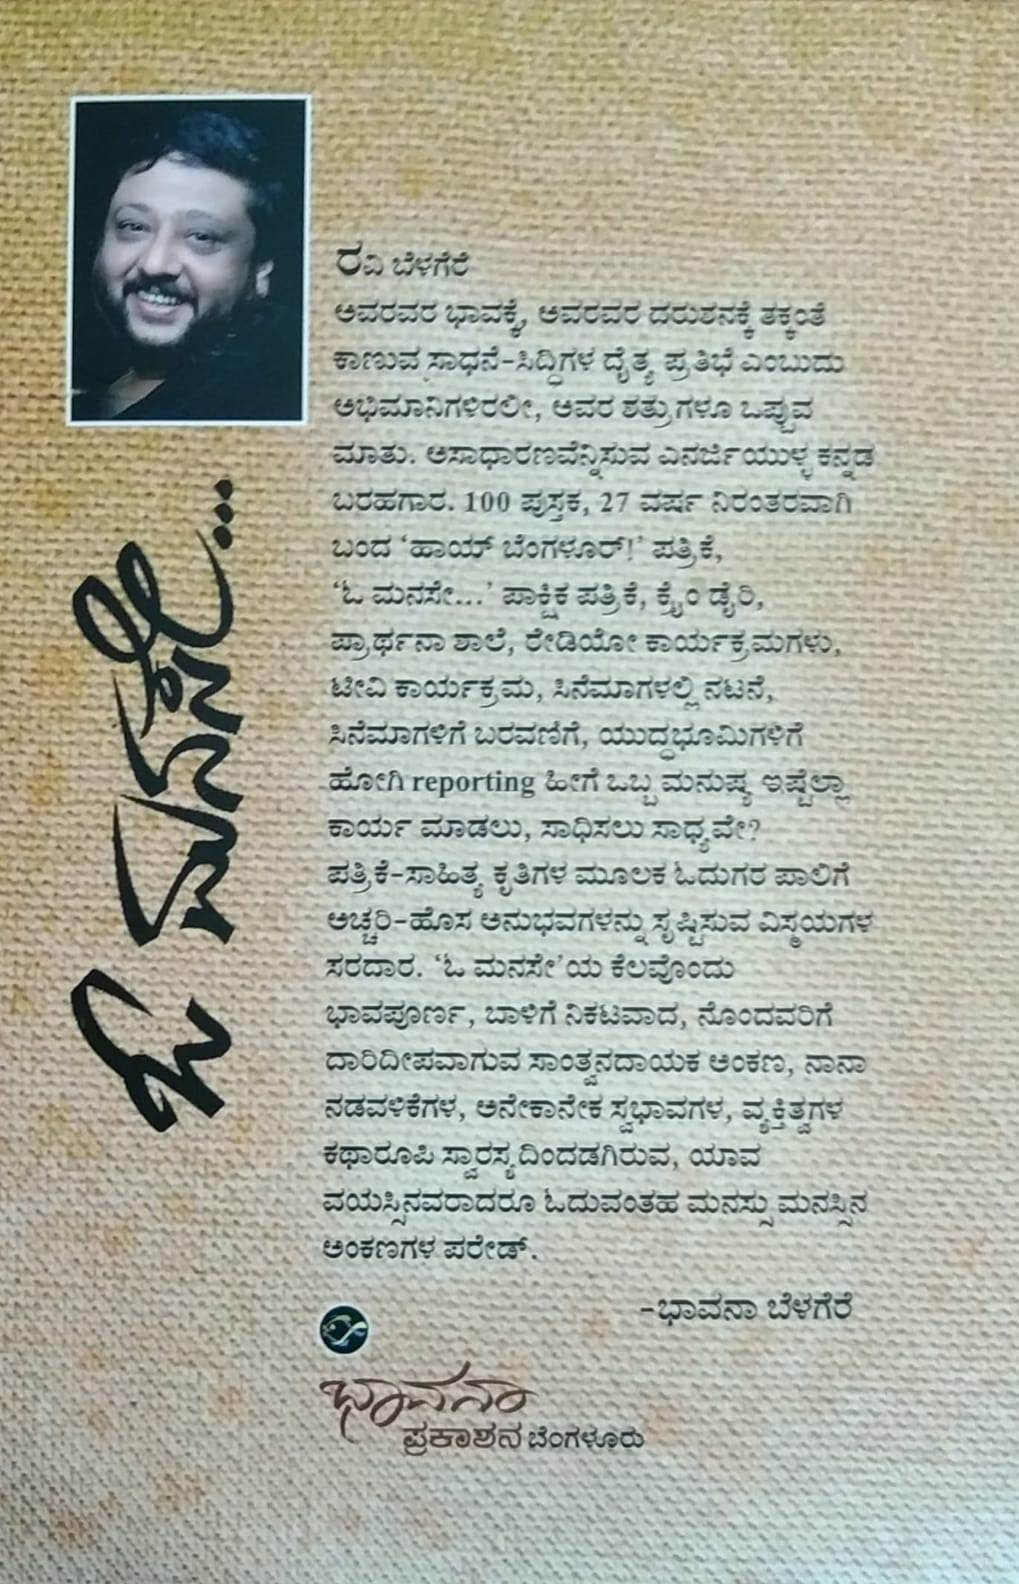 ಓ ಮನಸೇ...
ರವಿ ಬೆಳಗೆರೆ
ಅವರವರ ಭಾವಕ್ಕೆ, ಅವರವರ ದರುಶನಕ್ಕೆ ತಕ್ಕಂತೆ
ಕಾಣುವ ಸಾಧನೆ-ಸಿದ್ಧಿಗಳ ದೈತ್ಯ ಪ್ರತಿಭೆ ಎಂಬುದು
ಅಭಿಮಾನಿಗಳಿರಲೀ, ಅವರ ಶತ್ರುಗಳೂ ಒಪ್ಪುವ
ಮಾತು. ಅಸಾಧಾರಣವೆನ್ನಿಸುವ ಎನರ್ಜಿಯುಳ್ಳ ಕನ್ನಡ
ಬರಹಗಾರ. 100 ಪುಸ್ತಕ, 27 ವರ್ಷ ನಿರಂತರವಾಗಿ
ಬಂದ 'ಹಾಯ್ ಬೆಂಗಳೂರ್!' ಪತ್ರಿಕೆ,
'ಓ ಮನಸೇ...' ಪಾಕ್ಷಿಕ ಪತ್ರಿಕೆ, ಕ್ರೈಂ ಡೈರಿ,
ಪ್ರಾರ್ಥನಾ ಶಾಲೆ, ರೇಡಿಯೋ ಕಾರ್ಯಕ್ರಮಗಳು,
ಟೀವಿ ಕಾರ್ಯಕ್ರಮ, ಸಿನೆಮಾಗಳಲ್ಲಿ ನಟನೆ,
ಸಿನೆಮಾಗಳಿಗೆ ಬರವಣಿಗೆ, ಯುದ್ಧಭೂಮಿಗಳಿಗೆ
ಹೋಗಿ reporting ಹೀಗೆ ಒಬ್ಬ ಮನುಷ್ಯ ಇಷ್ಟೆಲ್ಲಾ
ಕಾರ್ಯ ಮಾಡಲು, ಸಾಧಿಸಲು ಸಾಧ್ಯವೇ?
ಪತ್ರಿಕೆ-ಸಾಹಿತ್ಯ ಕೃತಿಗಳ ಮೂಲಕ ಓದುಗರ ಪಾಲಿಗೆ
ಅಚ್ಚರಿ-ಹೊಸ ಅನುಭವಗಳನ್ನು ಸೃಷ್ಟಿಸುವ ವಿಸ್ಮಯಗಳ
ಸರದಾರ. 'ಓ ಮನಸೇ'ಯ ಕೆಲವೊಂದು
ಭಾವಪೂರ್ಣ, ಬಾಳಿಗೆ ನಿಕಟವಾದ, ನೊಂದವರಿಗೆ
ದಾರಿದೀಪವಾಗುವ ಸಾಂತ್ವನದಾಯಕ ಅಂಕಣ, ನಾನಾ
ನಡವಳಿಕೆಗಳ, ಅನೇಕಾನೇಕ ಸ್ವಭಾವಗಳ, ವ್ಯಕ್ತಿತ್ವಗಳ
ಕಥಾರೂಪಿ ಸ್ವಾರಸ್ಯದಿಂದಡಗಿರುವ, ಯಾವ
ವಯಸ್ಸಿನವರಾದರೂ ಓದುವಂತಹ ಮನಸ್ಸು ಮನಸ್ಸಿನ
ಅಂಕಣಗಳ ಪರೇಡ್.
-ಭಾವನಾ ಬೆಳಗೆರೆ
ಭಾವನಾ
ಪ್ರಕಾಶನ ಬೆಂಗಳೂರು